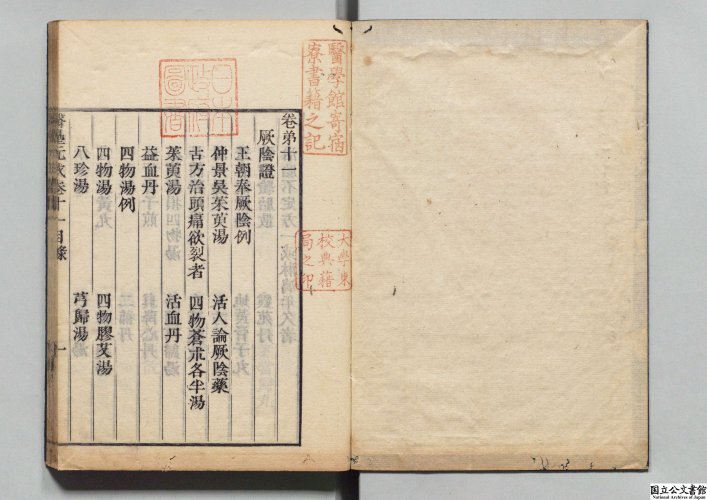 卷弟十一
厥陰證
王朝奉厥陰例　活人論厥陰藥
仲景吳茱萸湯
古方治頭痛欲裂者　四物蒼朮各半湯
茱萸湯　活血丹
益血丹
四物湯例
四物湯　四物膠艾湯
八珍湯　芎歸湯
醫壘元戎卷十一目錄　一
醫學館寄宿
寮書籍之記
大學東
校典籍
局之印
日本
政府
圖書
国立公文書館
National Archives of Japan